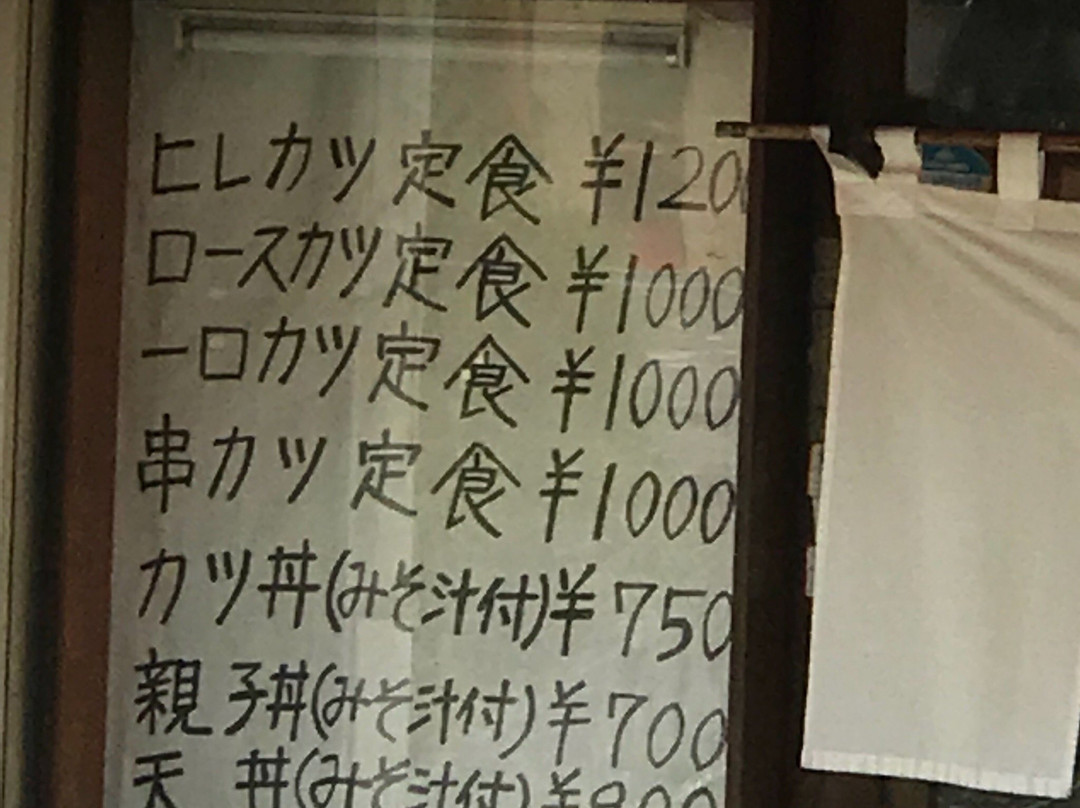 ヒレカツ定食 ¥120
ロースカツ定食 ¥1000
一口カツ定食 ¥1000
串カツ定食 ¥1000
カツ丼(みそ汁付)¥750
親子丼(みそ汁付)¥700
天丼(みそ汁付)¥800